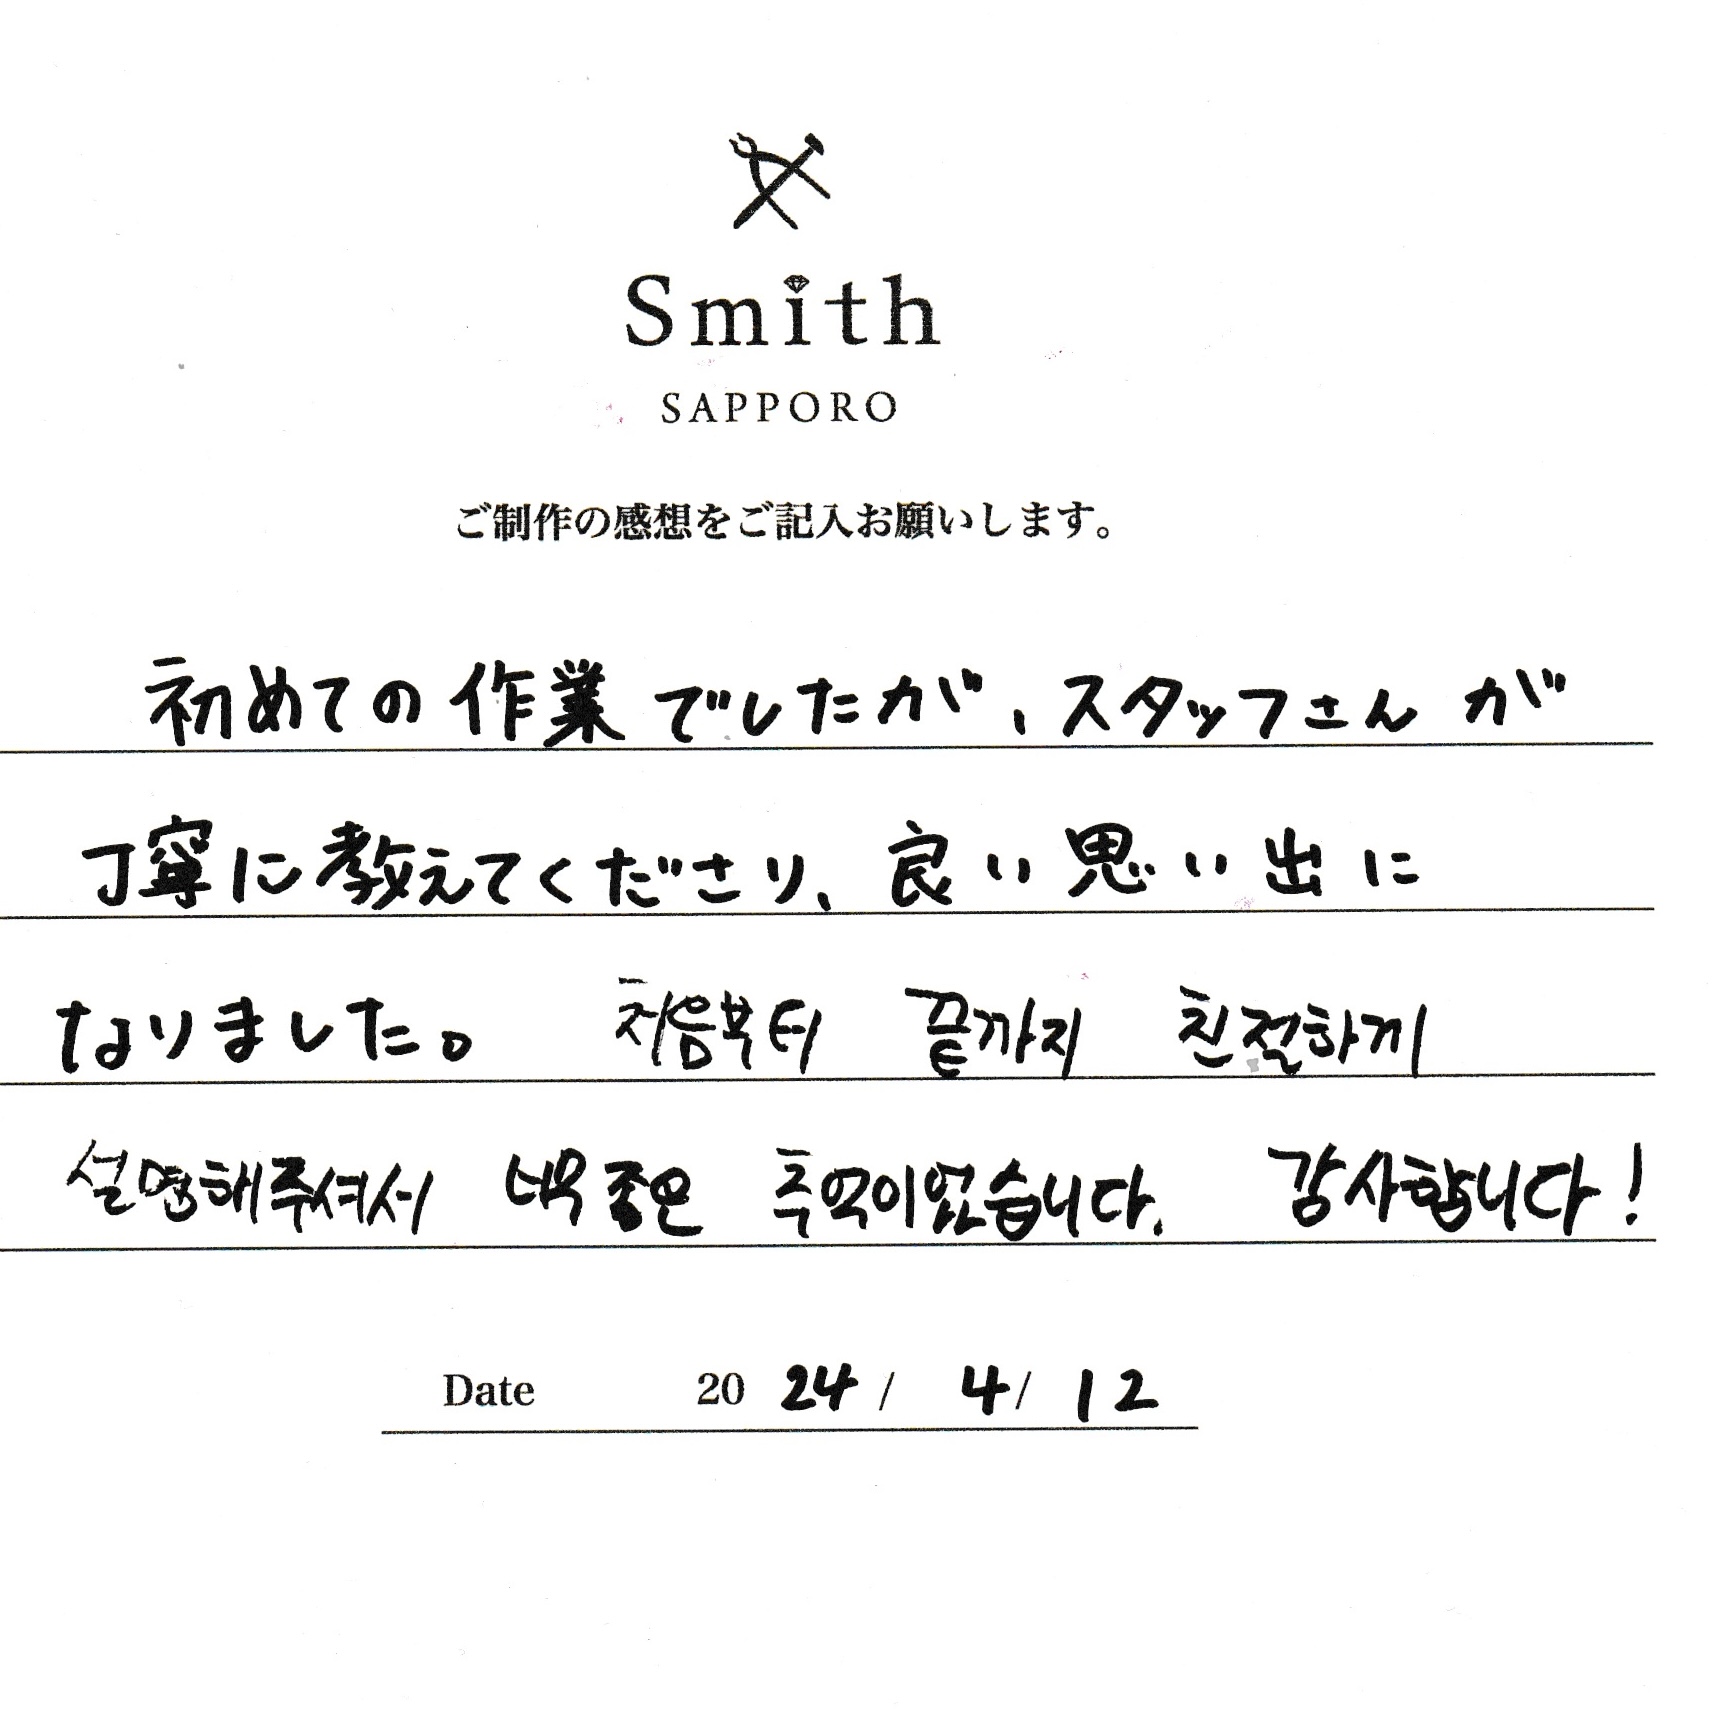 Smith
SAPPORO
ご制作の感想をご記入お願いします。
初めての作業でしたが、スタッフさんが
丁寧に教えてくださり、良い思い出に
なりました。 처음부터 끝까지 친절하게
설명해주셔서 너무 좋은 추억이었습니다. 감사합니다!
Date 2024/ 4/ 12